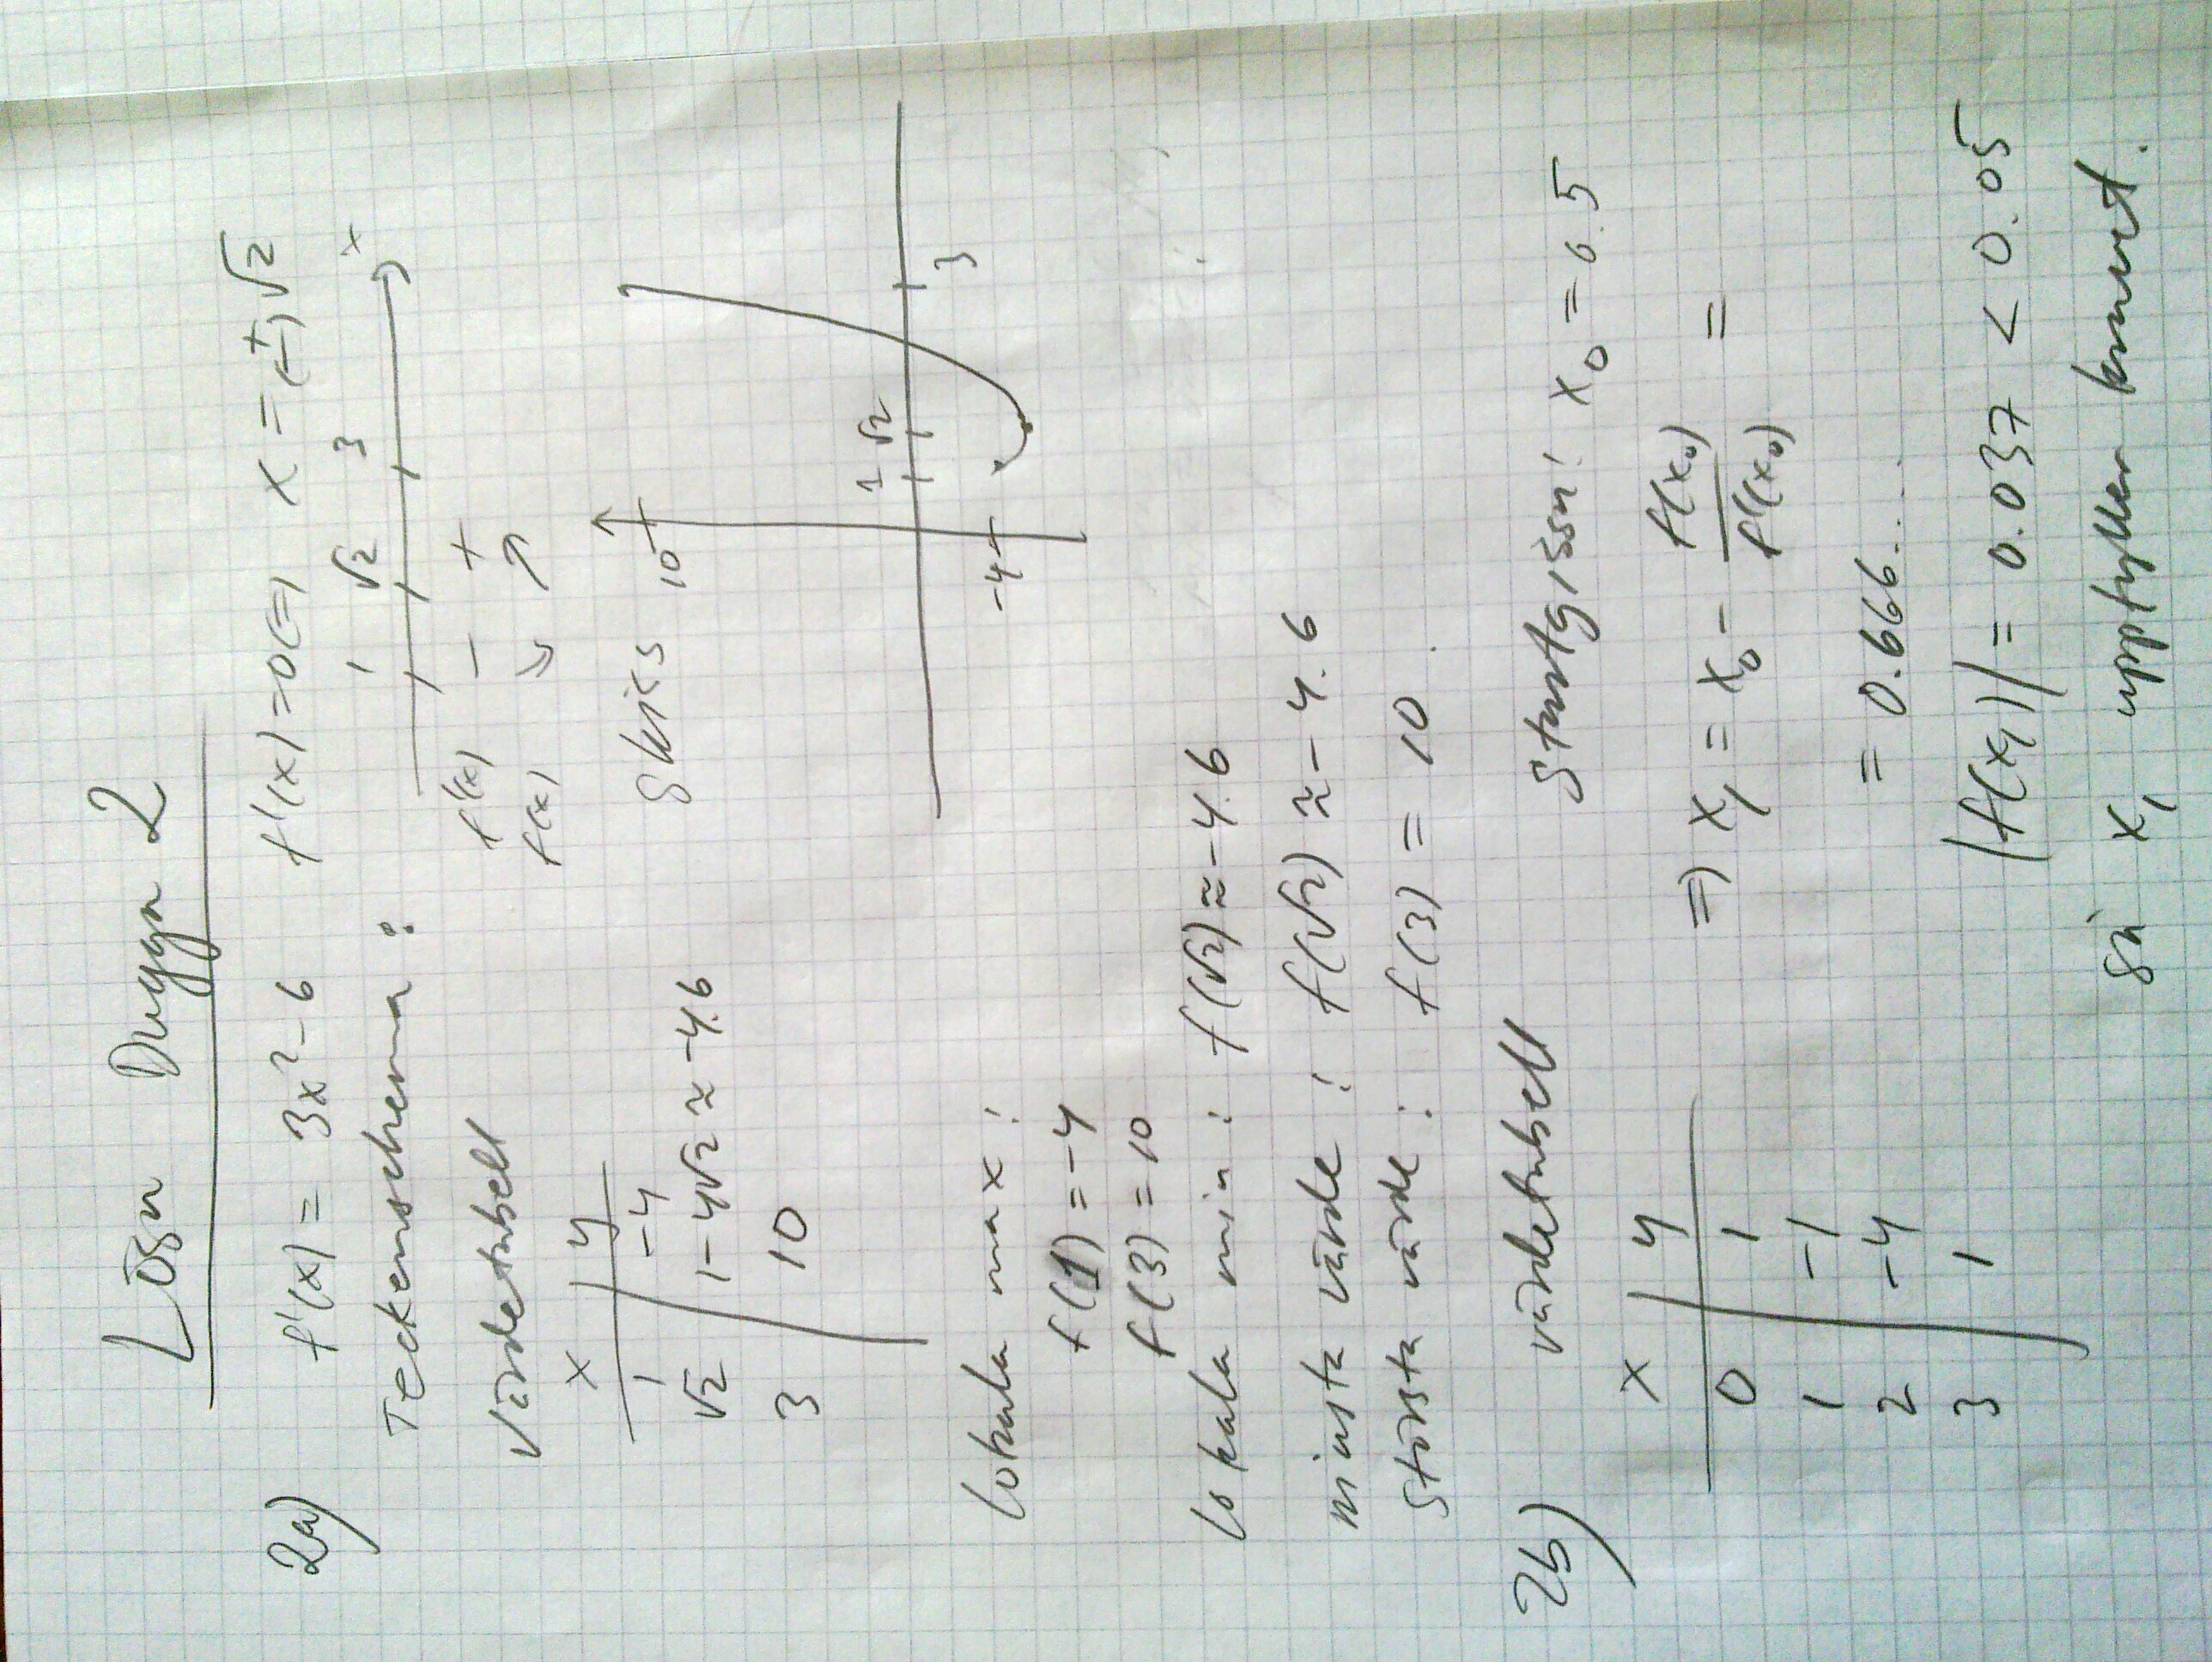 Lösn Dugga 2
2a) f'(x) = 3x²-6 f'(x)=0 (=) x=(±)√2
Teckenschema: 1 √2 3 x
f'(x) - +
f(x) ↘ ↗
Värdetabell
x y
1 -4
√2 1-4√2 ≈ -4.6
3 10
Skiss
10
1 √2 3
-4
lokala max:
f(1) = -4
f(3) = 10
lokala min: f(√2) ≈ -4.6
minsta värde: f(√2) ≈ -4.6
största värde: f(3) = 10.
2b) värdetabell
x y
0 1
1 -1
2 -4
3 1
Startgissn: x₀ = 0.5
=) x₁ = x₀ - f(x₀)/f'(x₀) =
= 0.666...
|f(x₁)| = 0.037 < 0.05
så x₁ uppfyller kravet.